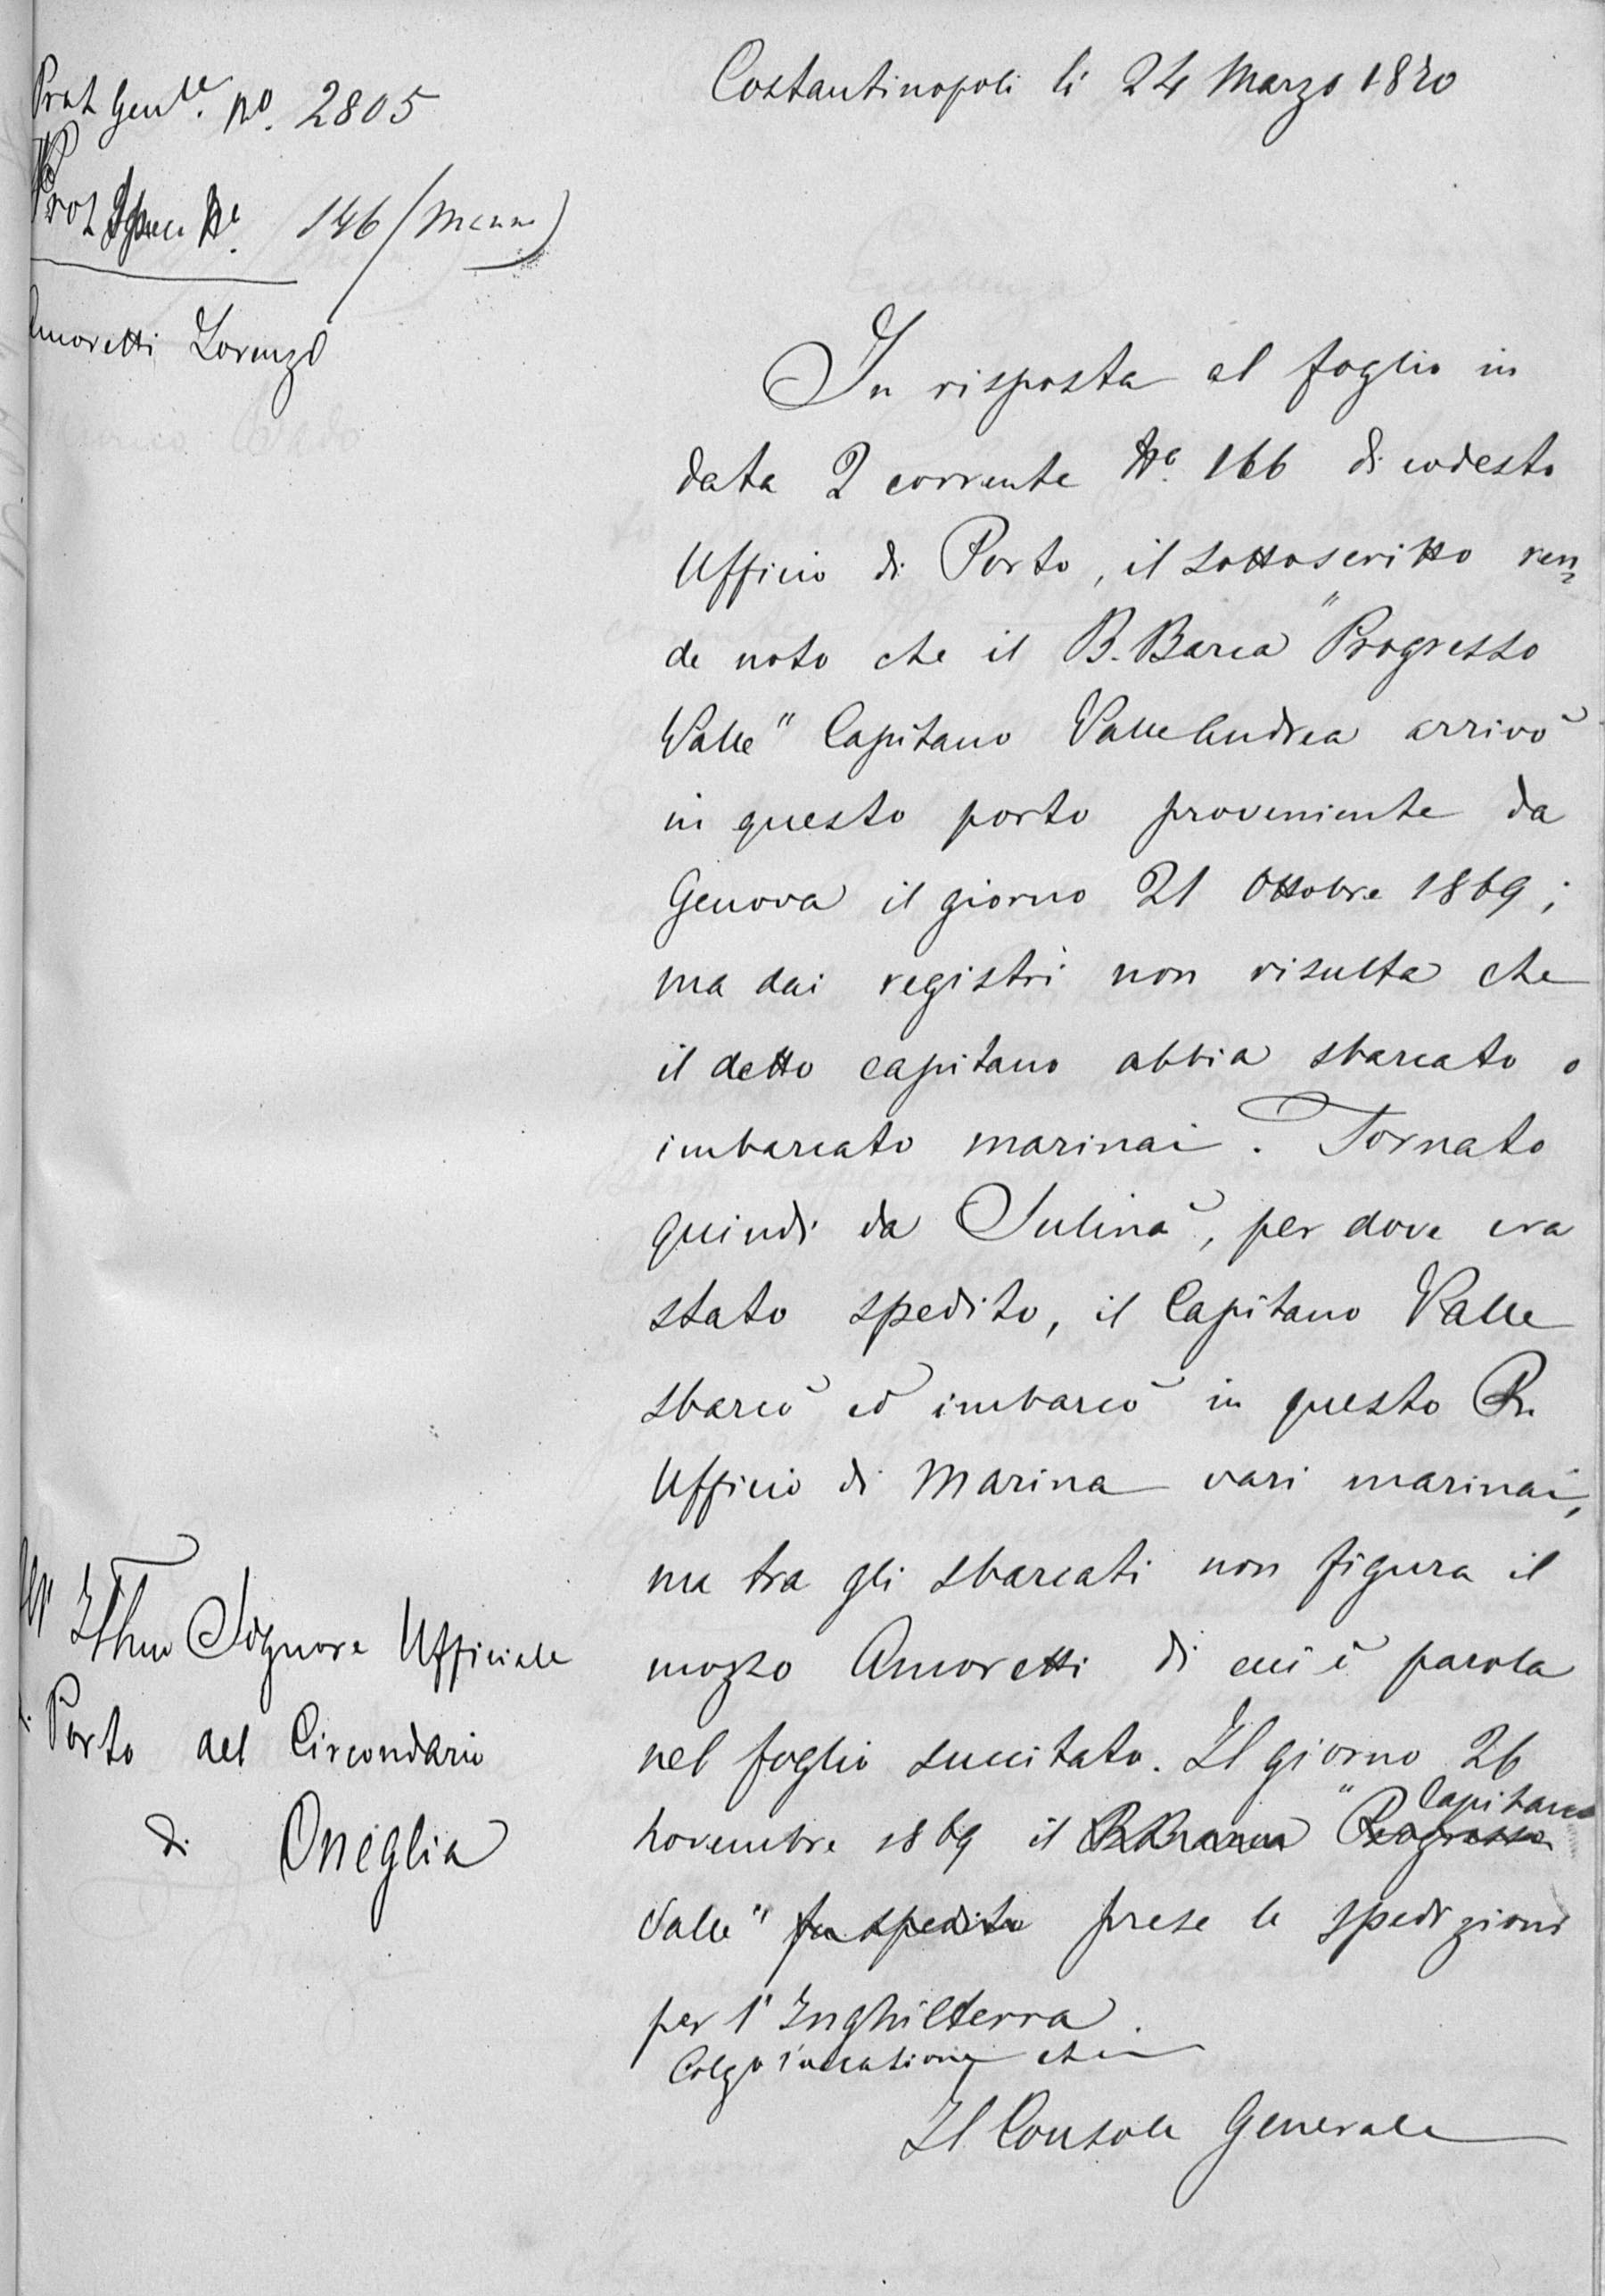 Costantinopoli li 24 Marzo 1870
Prot Gen.le No. 2805
Prot Spec No. 146
Amoretti Lorenzo
In risposta al foglio in
data 2 corrente No. 166 di codesto
Ufficio di Porto, il sottoscritto ren
de noto che il B. Barca "Progresso
Valle" Capitano Valle Andrea arrivò
in questo porto proveniente da
Genova il giorno 21 Ottobre 1869;
ma dai registri non risulta che
il detto capitano abbia sbarcato o
imbarcato marinai. Tornato
quindi da Sulinà, per dove era
stato spedito, il Capitano Valle
sbarcò ed imbarcò in questo R.
Ufficio di Marina vari marinai,
ma tra gli sbarcati non figura il
mozzo Amoretti di cui è parola
nel foglio succitato. Il giorno 26
Capitano
Novembre 1869 il B Barca "Progresso
Valle" fu spedito prese le spedizioni
per l'Inghilterra.
Colgo l'occasione
Il Console Generale
All' Illmo Signore Ufficiale
di Porto del Circondario
di Oneglia